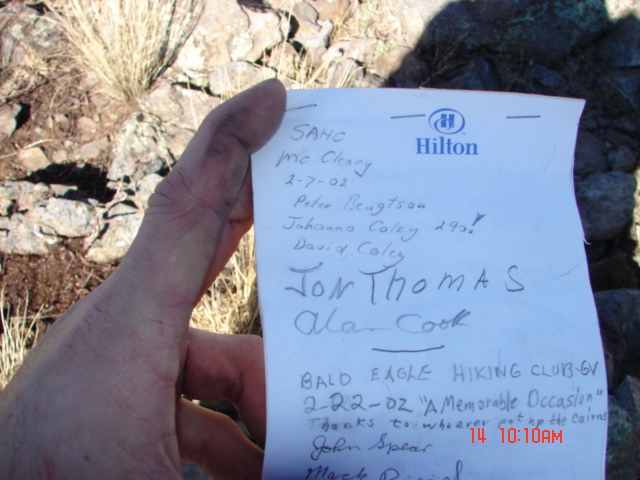 Hilton
SAHC
Mc Cleary
2-7-02
Peter Bengtson
Johanna Caley 290!
David Caley
JON THOMAS
Alan Cook
BALD EAGLE HIKING CLUB-GV
2-22-02 "A Memorable Occasion"
Thanks to whoever put up the cairns
John Spear
Mack
14 10:10AM